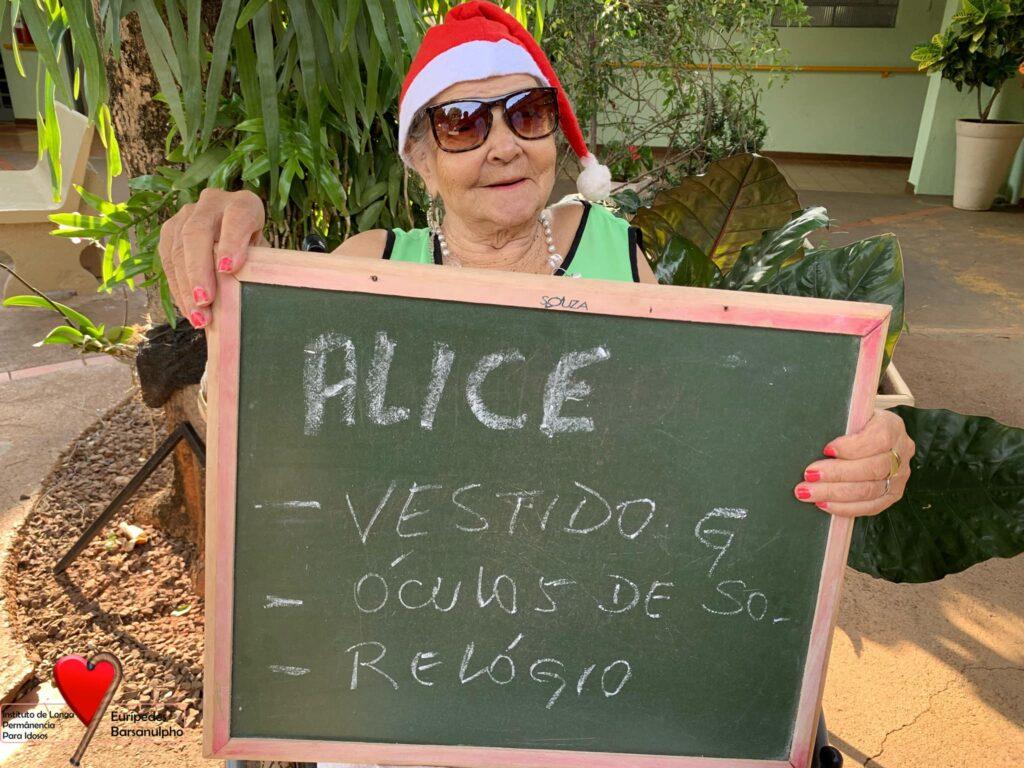 SOUZA
ALICE
- VESTIDO G
- ÓCULOS DE SO_
- RELÓGIO
Instituto de Longa
Permânencia
Para Idosos
Eurípedes
Barsanulpho